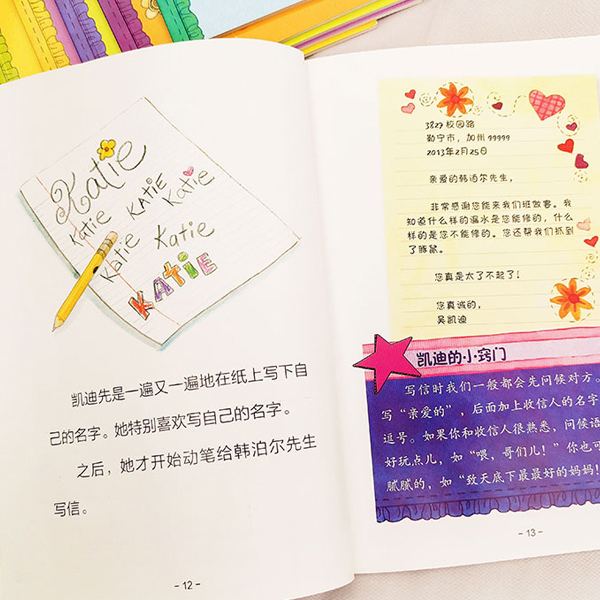 Katie
Katie
KATiE
Katie
Katie
Katie
KATiE
凯迪先是一遍又一遍地在纸上写下自
己的名字。她特别喜欢写自己的名字。
之后，她才开始动笔给韩泊尔先生
写信。
- 12 -
3827 校园路
勒宁市，加州 99999
2013年2月25日
亲爱的韩泊尔先生，
非常感谢您能来我们班做客。我
知道什么样的漏水是您能修的，什么
样的是您不能修的。您还帮我们抓到
了鼹鼠。
您真是太了不起了！
您真诚的，
吴凯迪
凯迪的小窍门
写信时我们一般都会先问候对方。
写“亲爱的”，后面加上收信人的名字
逗号。如果你和收信人很熟悉，问候语
好玩点儿，如“喂，哥们儿！”你也可
腻腻的，如“致天底下最最好的妈妈！
- 13 -